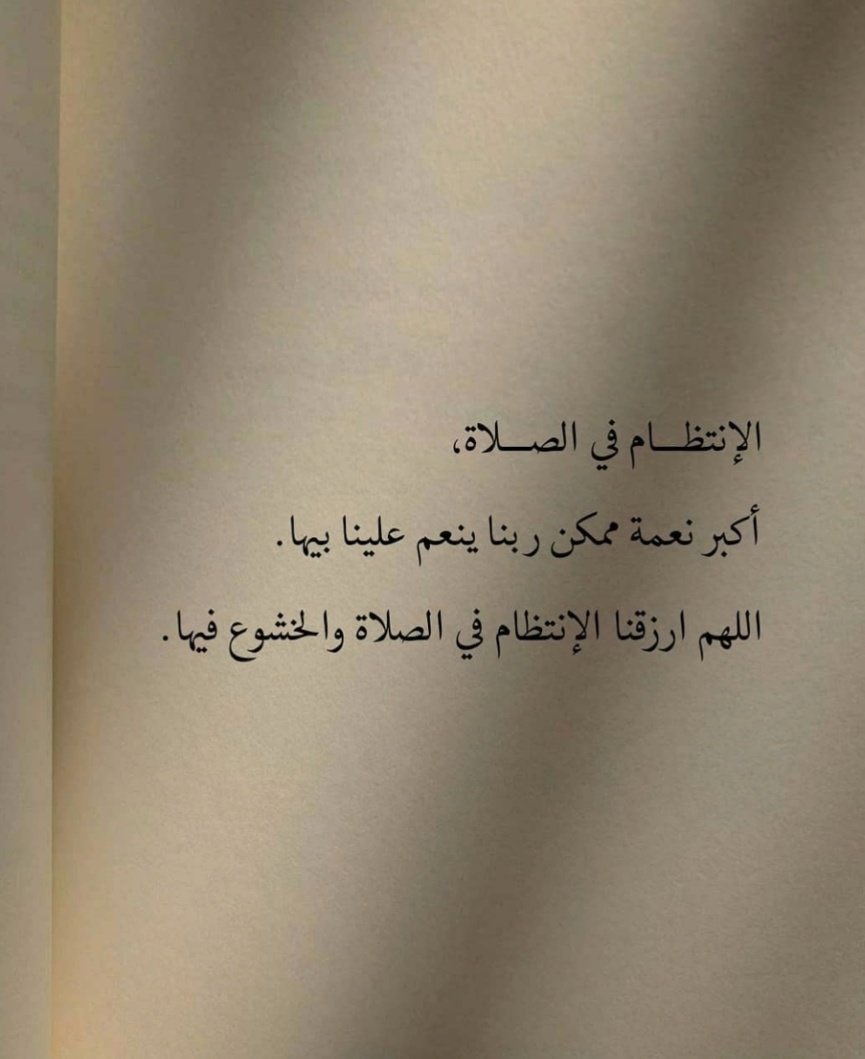 الإنتظــام في الصــلاة،
أكبر نعمة ممكن ربنا ينعم علينا بيها.
اللهم ارزقنا الإنتظام في الصلاة والخشوع فيها.